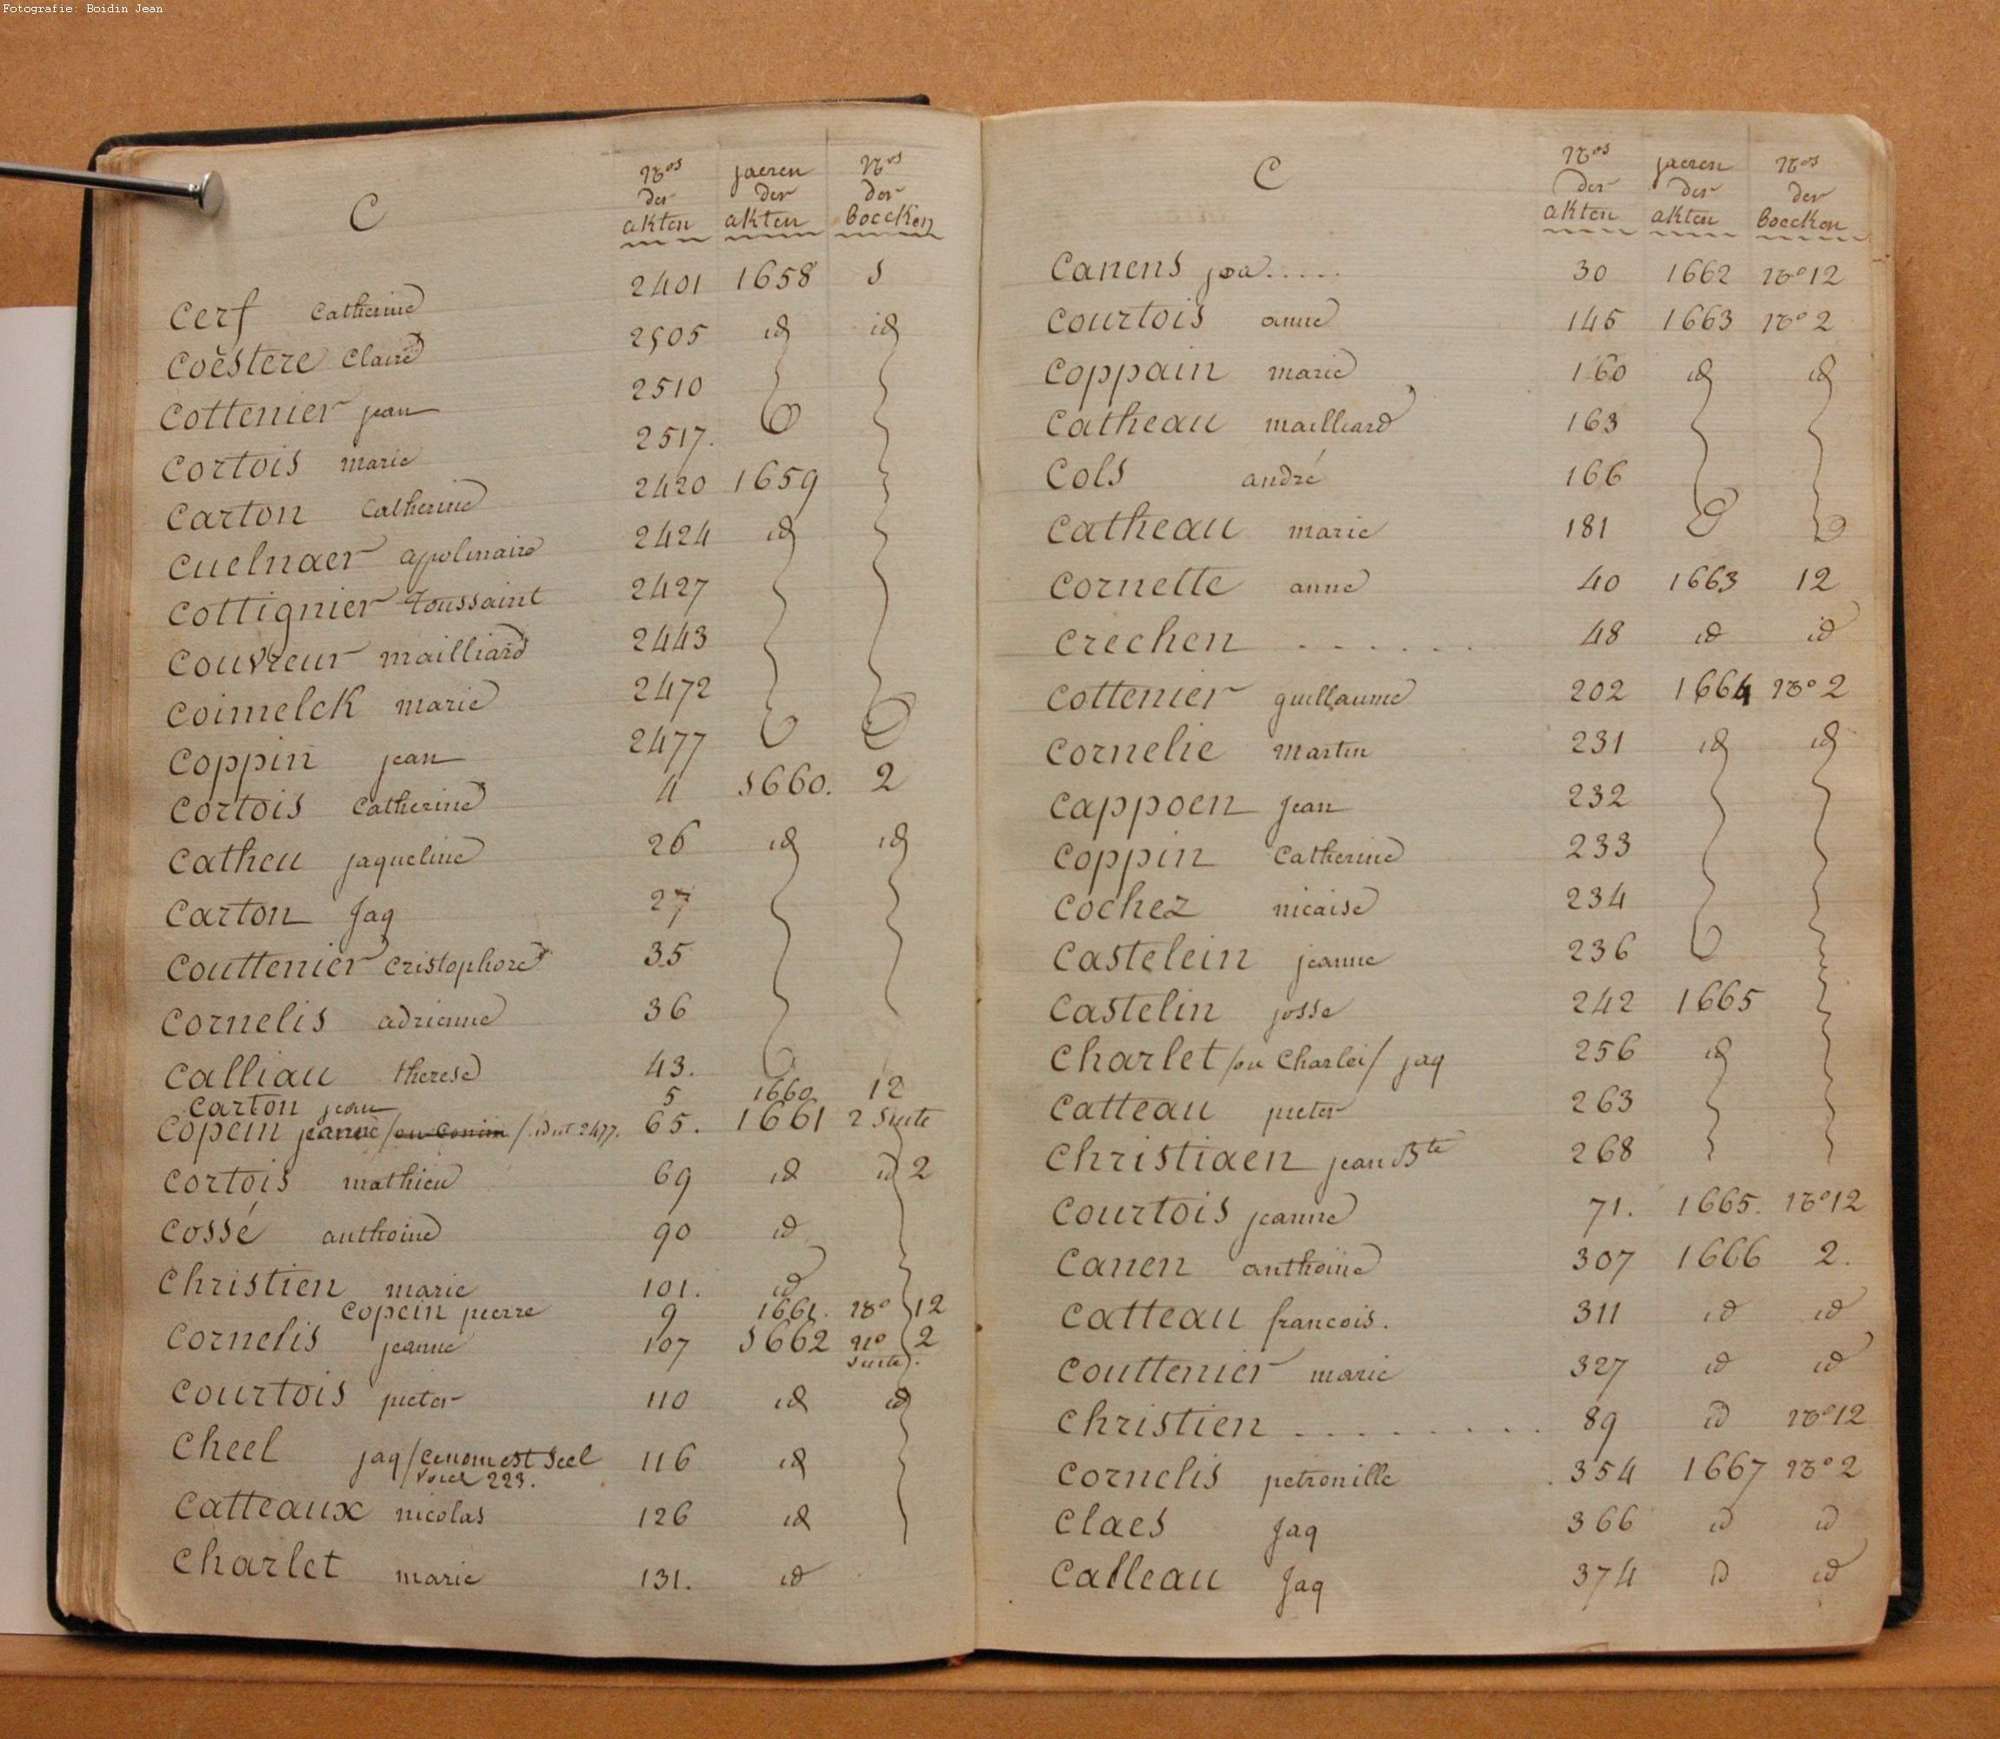 Fotografie: Boidin Jean
C
Nos der akten
jaeren der akten
Nos der boecken
Cerf Catherine 2401 1658 1
Coëstere Claire 2505 id id
Cottenier jean 2510
Cortois marie 2517.
Carton Catherine 2420 1659
Cuelnaer apolinaire 2424 id
Cottignier toussaint 2427
Couvreur mailliard 2443
Coimelck marie 2472
Coppin jean 2477
Cortois Catherine 4 1660. 2
Catheu jaqueline 26 id id
Carton Jaq 27
Couttenier Cristophore 35
Cornelis adrienne 36
Calliau therese 43.
Carton jean 5 1660 12
Copein jeanne /ou Conin/ 2477. 65. 1661 2 suite
Cortois mathieu 69 id id 2
Cossé anthoine 90 id
Christien marie 101. id
Copein pierre 9 1661. No 12
Cornelis jeanne 107 1662 no 2
suite
Courtois pieter 110 id id
Cheel jaq /ce nom est Seel 116 id
voiez 223.
Catteaux nicolas 126 id
Charlet marie 131. id
C
Nos der akten
jaeren der akten
Nos der boecken
Canens joa..... 30 1662 No 12
Courtois anne 145 1663 No 2
Coppain marie 160 id id
Catheau mailliard 163
Cols andré 166
Catheau marie 181
Cornette anne 40 1663 12
Crechen ...... 48 id id
Cottenier guillaume 202 1664 No 2
Cornelie martin 231 id id
Cappoen Jean 232
Coppin Catherine 233
Cochez nicaise 234
Castelein jeanne 236
Castelin josse 242 1665
Charlet /ou Charlei/ jaq 256 id
Catteau pieter 263
Christiaen jean Bte 268
Courtois jeanne 71. 1665. No 12
Canen anthoine 307 1666 2.
Catteau francois. 311 id id
Couttenier marie 327 id id
Christien ........ 89 id No 12
Cornelis petronille 354 1667 No 2
Claes Jaq 366 id id
Catteau Jaq 374 id id